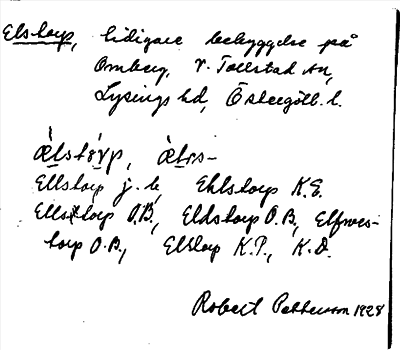 Elstorp, tidigare bebyggelse på
Omberg, V. Tollstad sn,
Lysings hd, Östergötl. l.
æ̀lstó̤rp, æ̀lrs-
Ellstorp j. b., Ehlstorp K.E.
Ellstorp O.B., Eldstorp O.B., Elfwes-
torp O.B., Elstorp K.P., K.D.
Robert Pettersson 1928